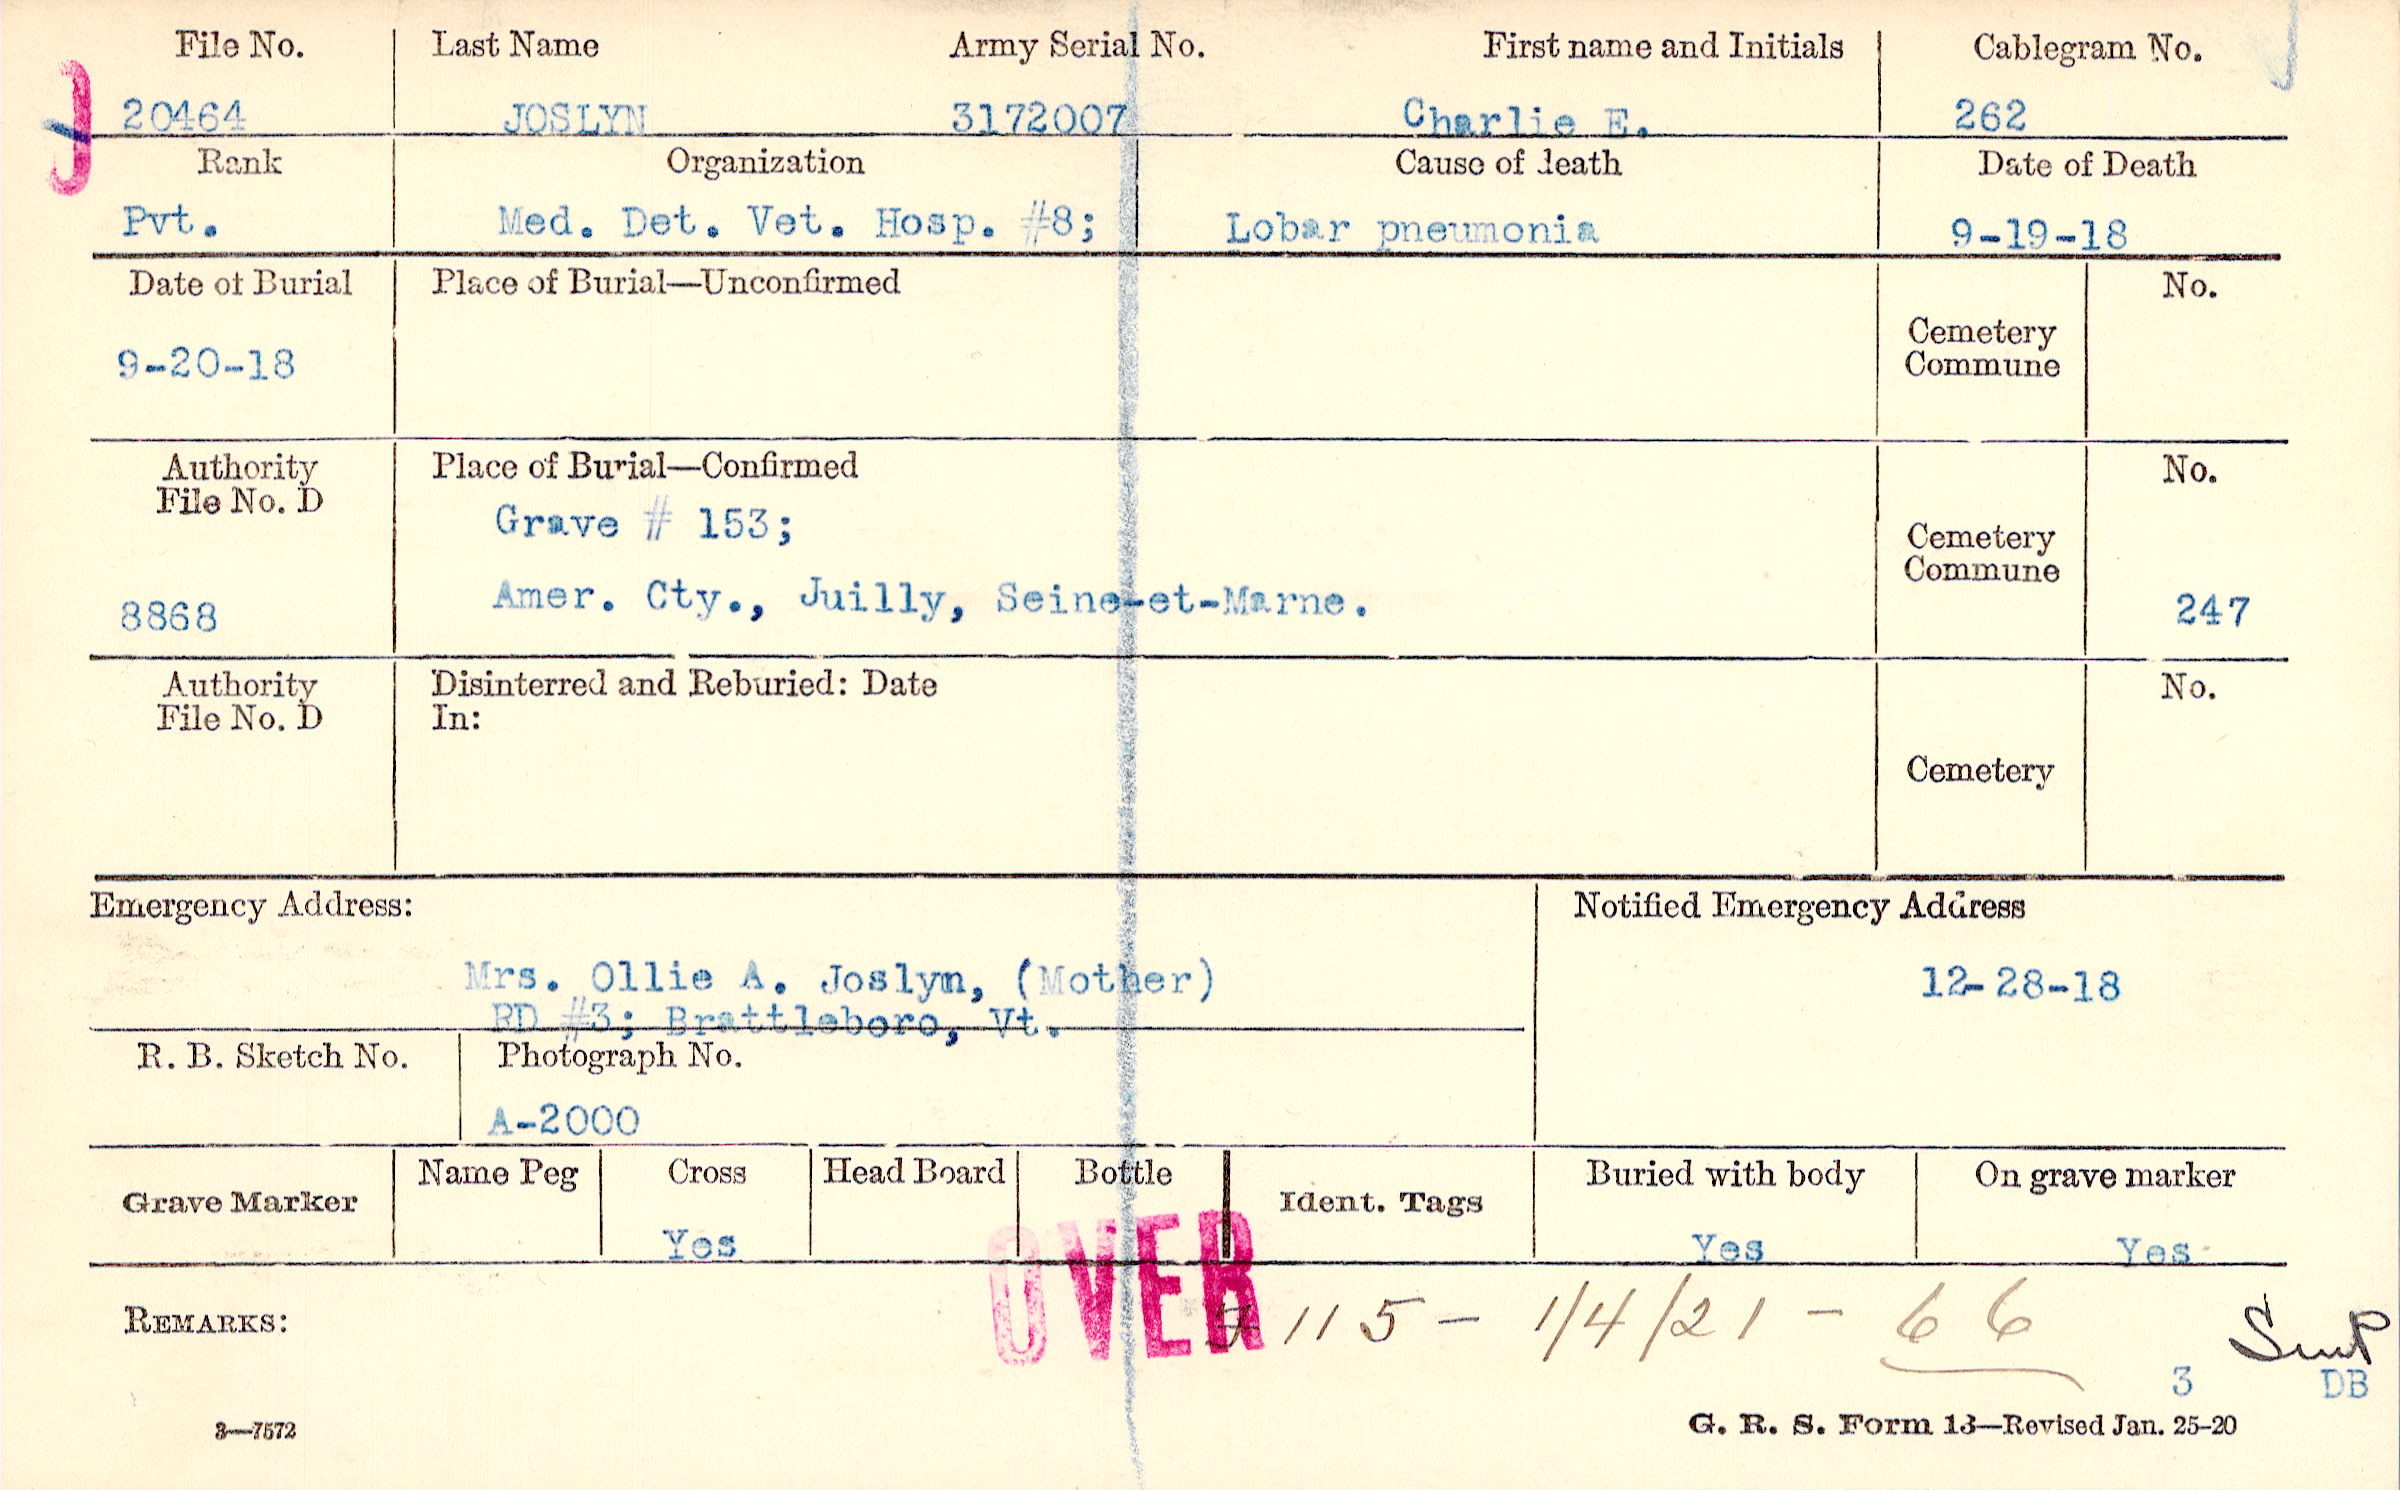 File No. Last Name Army Serial No. First name and Initials Cablegram No.
J 20464 JOSLYN 3172007 Charlie E. 262
Rank Organization Cause of death Date of Death
Pvt. Med. Det. Vet. Hosp. #8; Lobar pneumonia 9-19-18
Date of Burial Place of Burial—Unconfirmed No.
Cemetery
Commune
9-20-18
Authority Place of Burial—Confirmed No.
File No. D
Grave # 153;
Cemetery
Commune
8868 Amer. Cty., Juilly, Seine-et-Marne. 247
Authority Disinterred and Reburied: Date No.
File No. D In:
Cemetery
Emergency Address: Notified Emergency Address
Mrs. Ollie A. Joslyn, (Mother) 12-28-18
RD #3; Brattleboro, Vt.
R. B. Sketch No. Photograph No.
A-2000
Grave Marker Name Peg Cross Head Board Bottle Ident. Tags Buried with body On grave marker
Yes Yes Yes
OVER
REMARKS: 115 - 1/4/21 - 66
3 DB
3—7572 G. R. S. Form 13—Revised Jan. 25-20